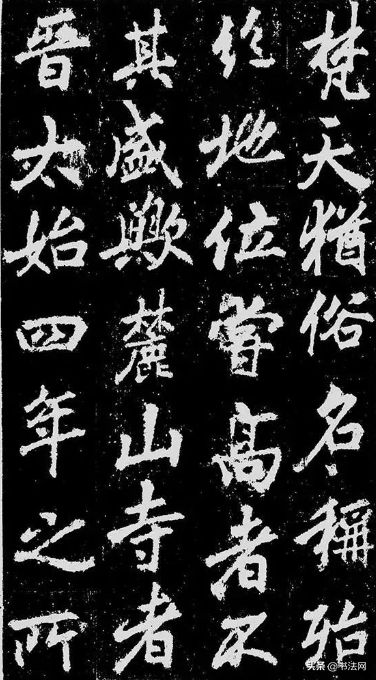 梵天猶俗名稱殆
絶地位嘗高者不
其盛歟麓山寺者
晉太始四年之所
头条 @书法网